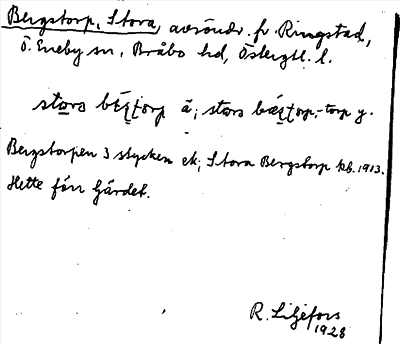 Bergstorp, Stora, avsöndr. fr. Ringstad,
Ö. Eneby sn, Bråbo hd, Östergtl. l.
stora torp ä; stora torp, -torp y.
Bergstorpen 3 stycken ek; Stora Bergstorp kb. 1913.
Hette förr Gärdet.
R. Liljefors
1928